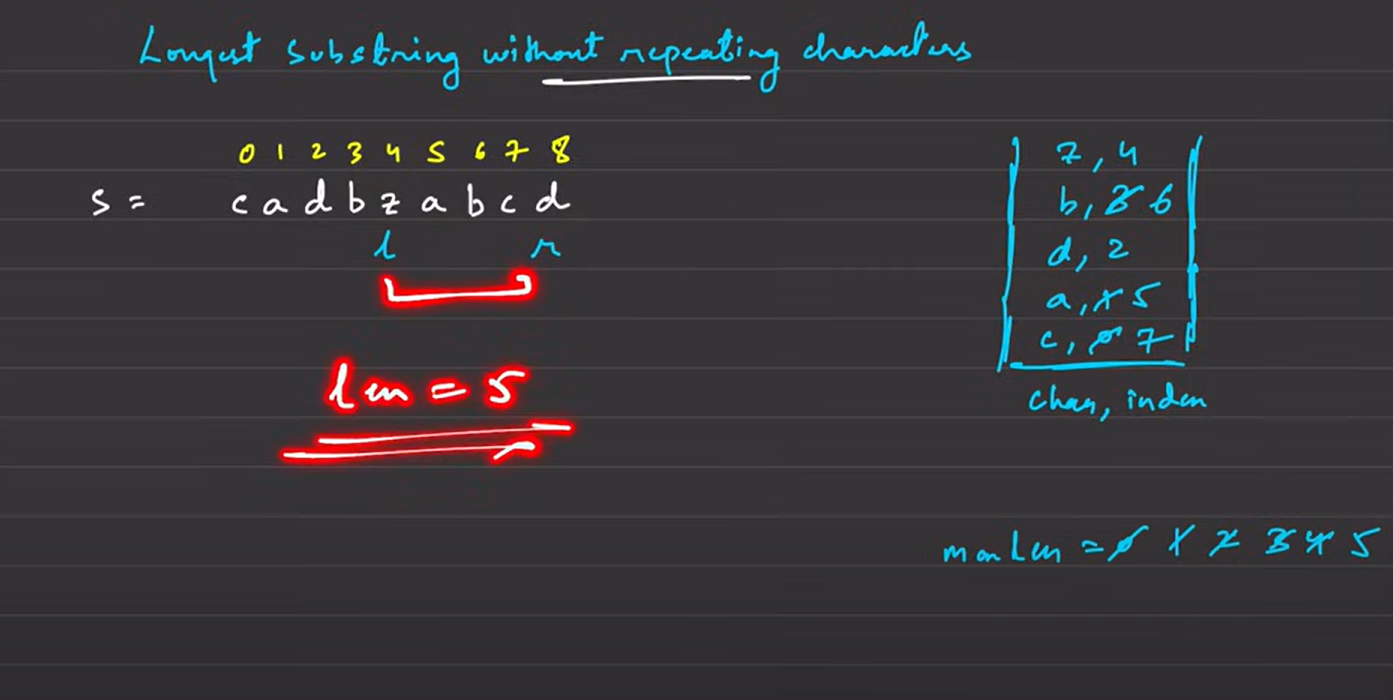 Longest substring without repeating characters
0 1 2 3 4 5 6 7 8
s = c a d b z a b c d
l r
len = 5
z, 4
b, 3 6
d, 2
a, 1 5
c, 0 7
char, index
maxLen = 0 1 2 3 4 5